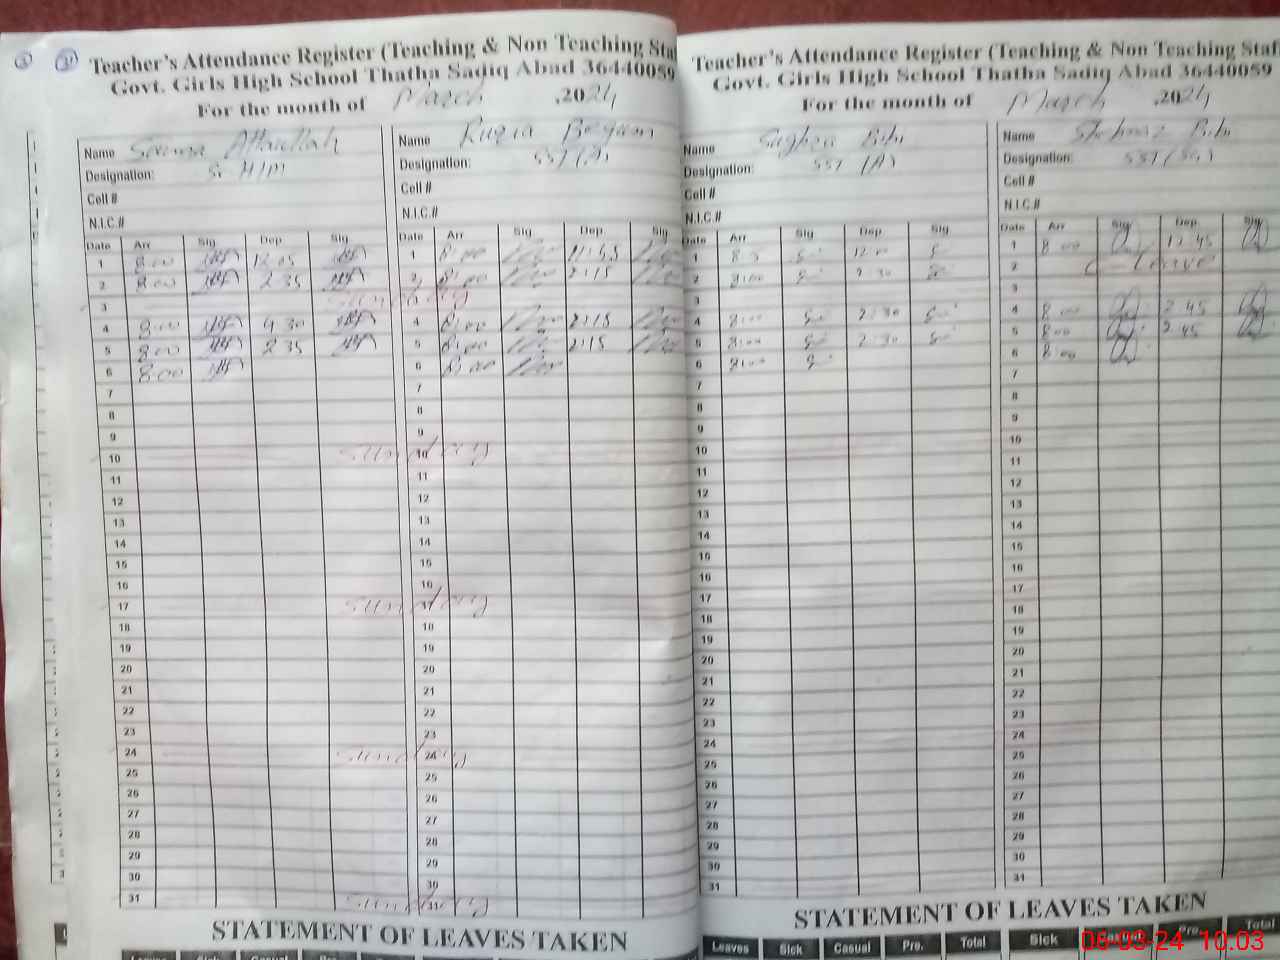 Teacher's Attendance Register (Teaching & Non Teaching Staf
Govt. Girls High School Thatha Sadiq Abad 36440059
For the month of March ,2024
Name Attaullah
Designation:
Cell #
N.I.C.#
Date Arr Sig Dep Sig
1 8:00 12:05
2 8:00 2:35
3 Sunday
4 8:00 4:30
5 8:00 2:35
6 8:00
7
8
9
10 Sunday
11
12
13
14
15
16
17 Sunday
18
19
20
21
22
23
24 Sunday
25
26
27
28
29
30
31 Sunday
STATEMENT OF LEAVES TAKEN
Leaves Sick Casual Pre.
Name Ruzia Begum
Designation: SST (A)
Cell #
N.I.C.#
Date Arr Sig Dep Sig
1 8:00 11:45
2 8:00 2:15
4 8:00 2:15
5 8:00 2:15
6 8:00
7
8
9
10
11
12
13
14
15
16
18
19
20
21
22
23
24
25
26
27
28
29
30
31
Teacher's Attendance Register (Teaching & Non Teaching Staf
Govt. Girls High School Thatha Sadiq Abad 36440059
For the month of March ,2024
Name Sughra Bibi
Designation: SST (A)
Cell #
N.I.C.#
Date Arr Sig Dep Sig
1 12:00
2 8:00 2:30
3
4 8:00 2:30
5 8:00 2:30
6 8:00
7
8
9
10
11
12
13
14
15
16
17
18
19
20
21
22
23
24
25
26
27
28
29
30
31
STATEMENT OF LEAVES TAKEN
Leaves Sick Casual Pre. Total
Name Shehnaz Bibi
Designation: SST (Sc)
Cell #
N.I.C.#
Date Arr Sig Dep Sig
1 8:00 12:45
2 C-Leave
3
4 8:00 2:45
5 8:00 2:45
6 8:00
7
8
9
10
11
12
13
14
15
16
17
18
19
20
21
22
23
24
25
26
27
28
29
30
31
Sick Pre. Total
06-03-24 10.03